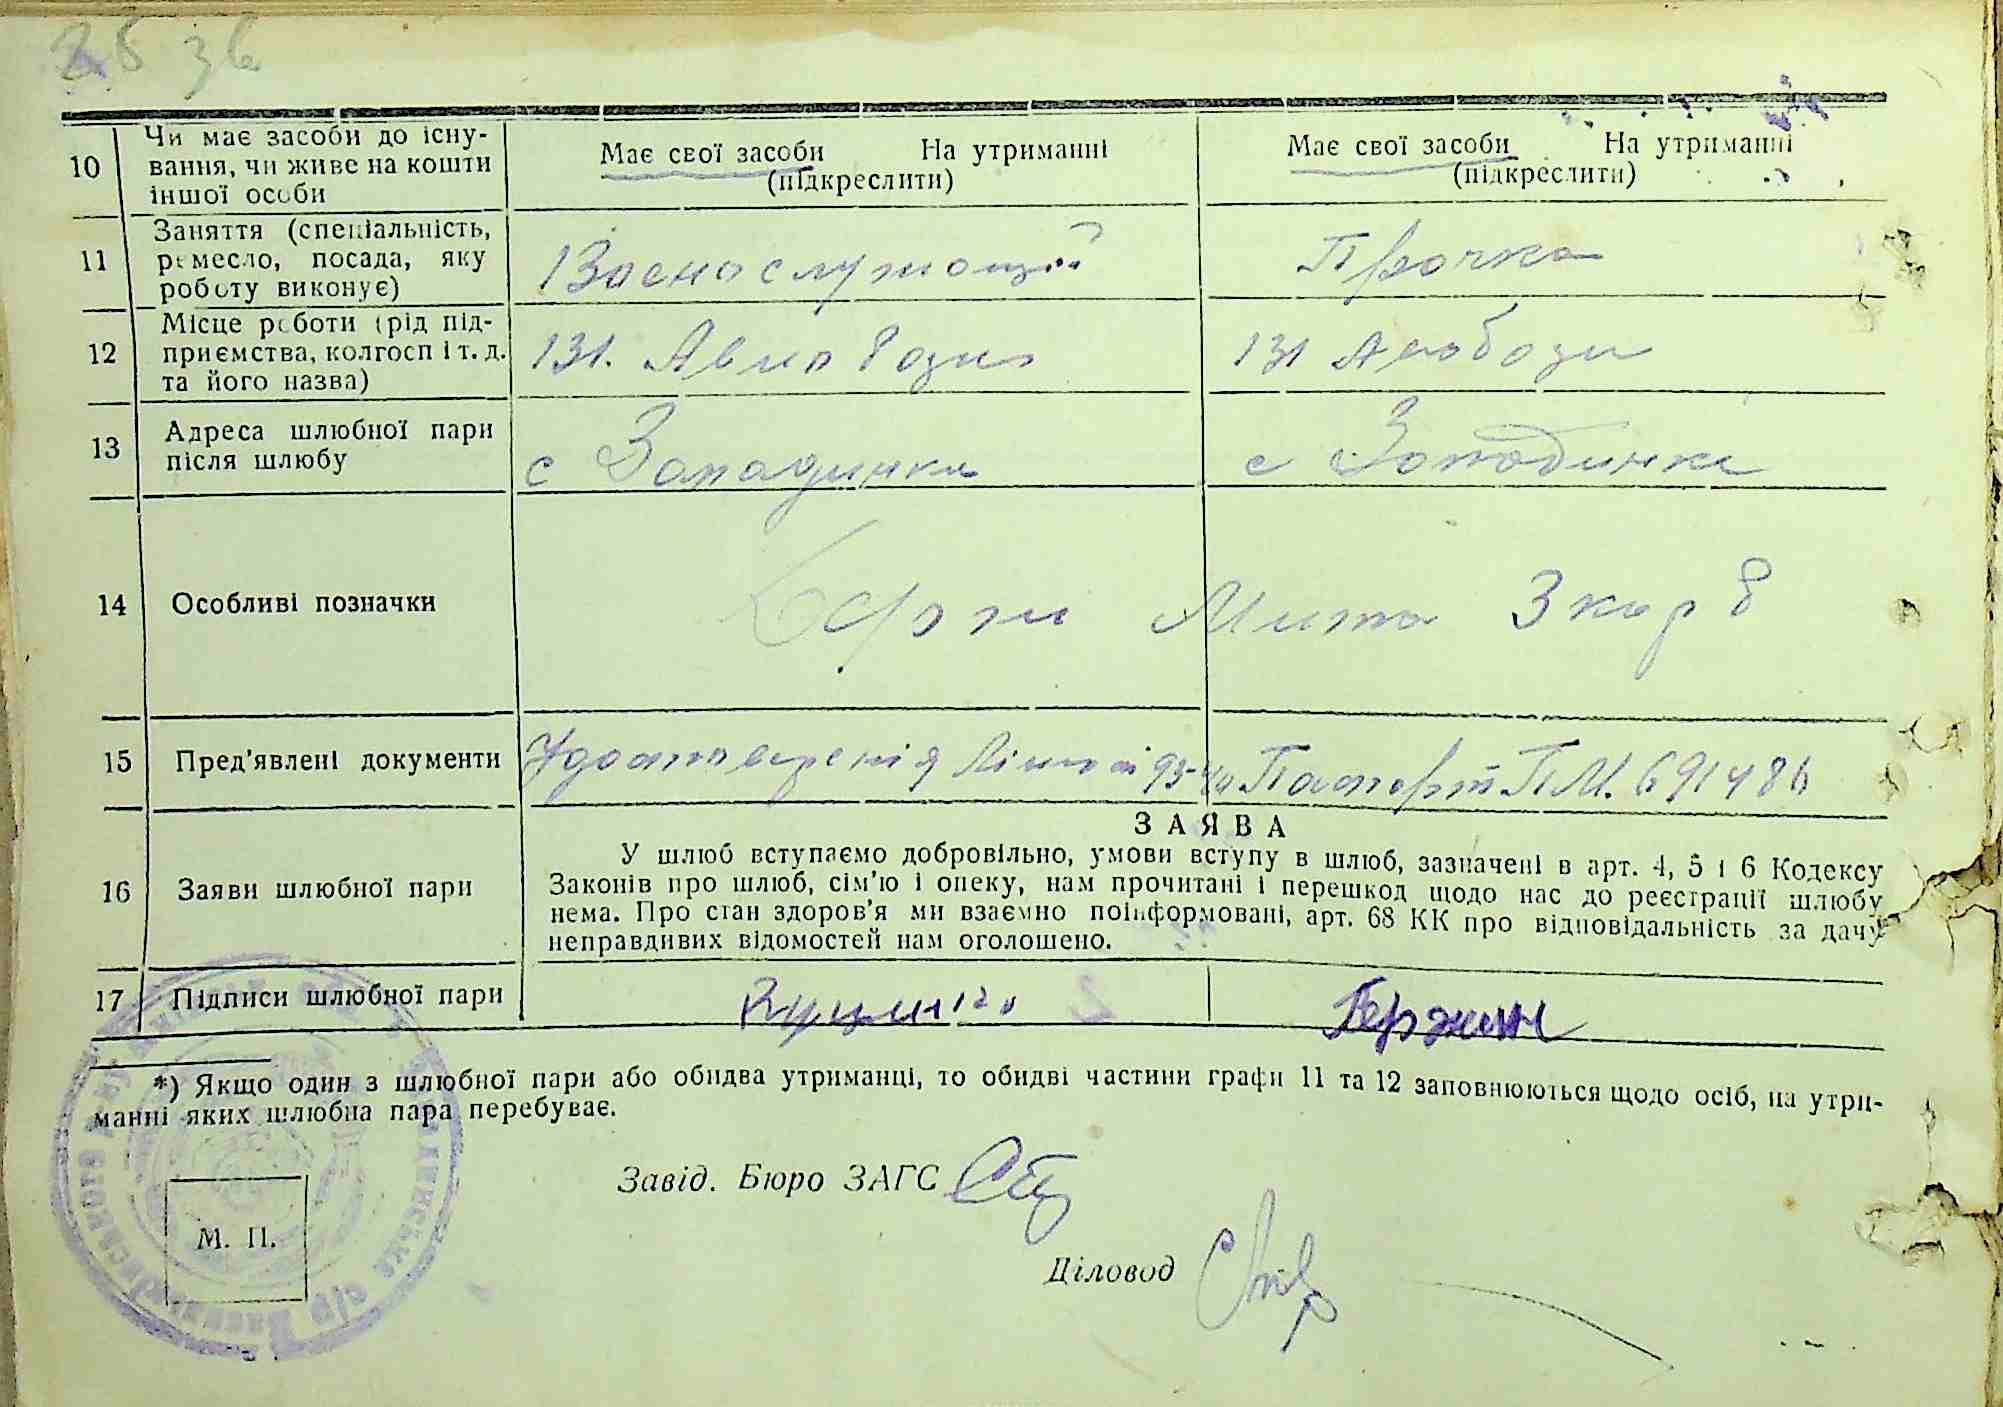 36
10
Чи має засоби до існу-
вання, чи живе на кошти
іншої особи
Має свої засоби На утриманні
(підкреслити)
Має свої засоби На утриманні
(підкреслити)
11
Заняття (спеціальність,
ремесло, посада, яку
роботу виконує)
Воєнослужащій
Прачка
12
Місце роботи (рід під-
приємства, колгосп і т. д.
та його назва)
131. Авио базис
131 Авобози
13
Адреса шлюбної пари
після шлюбу
с Западинка
с Западинка
14
Особливі позначки
15
Пред'явлені документи
Удостоверенія
Паспорт ПМ. 691486
16
Заяви шлюбної пари
ЗАЯВА
У шлюб вступаємо добровільно, умови вступу в шлюб, зазначені в арт. 4, 5 і 6 Кодексу
Законів про шлюб, сім'ю і опеку, нам прочитані і перешкод щодо нас до реєстрації шлюбу
нема. Про стан здоров'я ми взаємно поінформовані, арт. 68 КК про відповідальність за дачу
неправдивих відомостей нам оголошено.
17
Підписи шлюбної пари
*) Якщо один з шлюбної пари або обидва утриманці, то обидві частини графи 11 та 12 заповнюються щодо осіб, на утри-
манні яких шлюбна пара перебуває.
Завід. Бюро ЗАГС
М. П.
Діловод